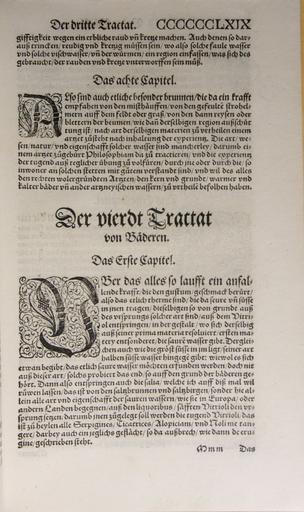 Der dritte Tractat. CCCCCCLXIX
gifftigkeit wegen ein erbliche raud vñ kretz machen. Auch denen so dar-
auß trincken, reudig vnd kretzig müssen sein, wo also solche faule wasser
vnd solche vischwasser, vñ der würmen, ein region einfassen, was sich des
gebraucht, der rauden vnd kretz unterworffen sein müß.
Das achte Capitel.
Also sind auch etliche besonder brunnen, die da ein krafft
empfahen von den
mern auff dem feldt oder graß, von den dann reysen oder
blettern der beumen, wie dañ derselbigen region außschüt
tung ist, nach art derselbigen materien zu vertheilen einem
artzet zustehe nach inhaltung der experientz. Die art, we-
sen, natur, vnd eigenschafft solcher wasser sind mancherley, darumb ei-
nem artzet zugehört Philosophiam da zu tractieren, vnd die experientz
der tugend auß teglicher übung zu volfüren, durch jne oder durch die, so
inwoner an solchen steten mit gutem verstandt sind, vnd wil das alles
den rechten wolergründten Artzten, den kern vnd grundt, warmer vnd
kalter bäder vñ ander artzneyischen wassern, zu vertheil befolhen haben.
Der vierdt Tractat
von Bäderen.
Das Erste Capitel.
Über das alles so laufft ein anfal-
lende krafft, die den gustum, geschmack berürt,
also das etlich therme sind, die da seure vñ süsse
in jnen tragen, dieselbigen so von grundt auß
des vrsprungs solcher art sind, auß dem Vitri-
ol entspringen, in der gestalt, wo sich derselbig
auß seiner prima materia resoluiert, ersten ma-
tery entsondert, die saure wasser gibt. Derglei-
chen auch wie die größt süsse im im ligt, seiner art
halben süsse wasser hingegē gibt, wiewol es sich
etwan begibt, das etlich saure wasser möchten erfunden werden, doch nit
auß dieser art, solchs probiert das end, so auff den grund der bäderen ge-
hört. Dann also entspringen auch die salia, welche ich auff diß mal wil
rüwen lassen, das ist von den saltzbrunnen vnd saltzbergen, sonder bleib al-
lein alle art vnd eigenschafft der sauren wassern, wie sie in Europa, oder
andern Landen begegnen, auß den liquoribus, säfften Vitrioli den vr-
sprung
ist zu heylen alle Serpigines, Cicatrices, Alopiciam, vnd Noli me tan-
gere, darbey auch ein jeglichs geschlächt, so da außbrech, wie dann de eru-
gine, geschrieben steht.
Mmm Das